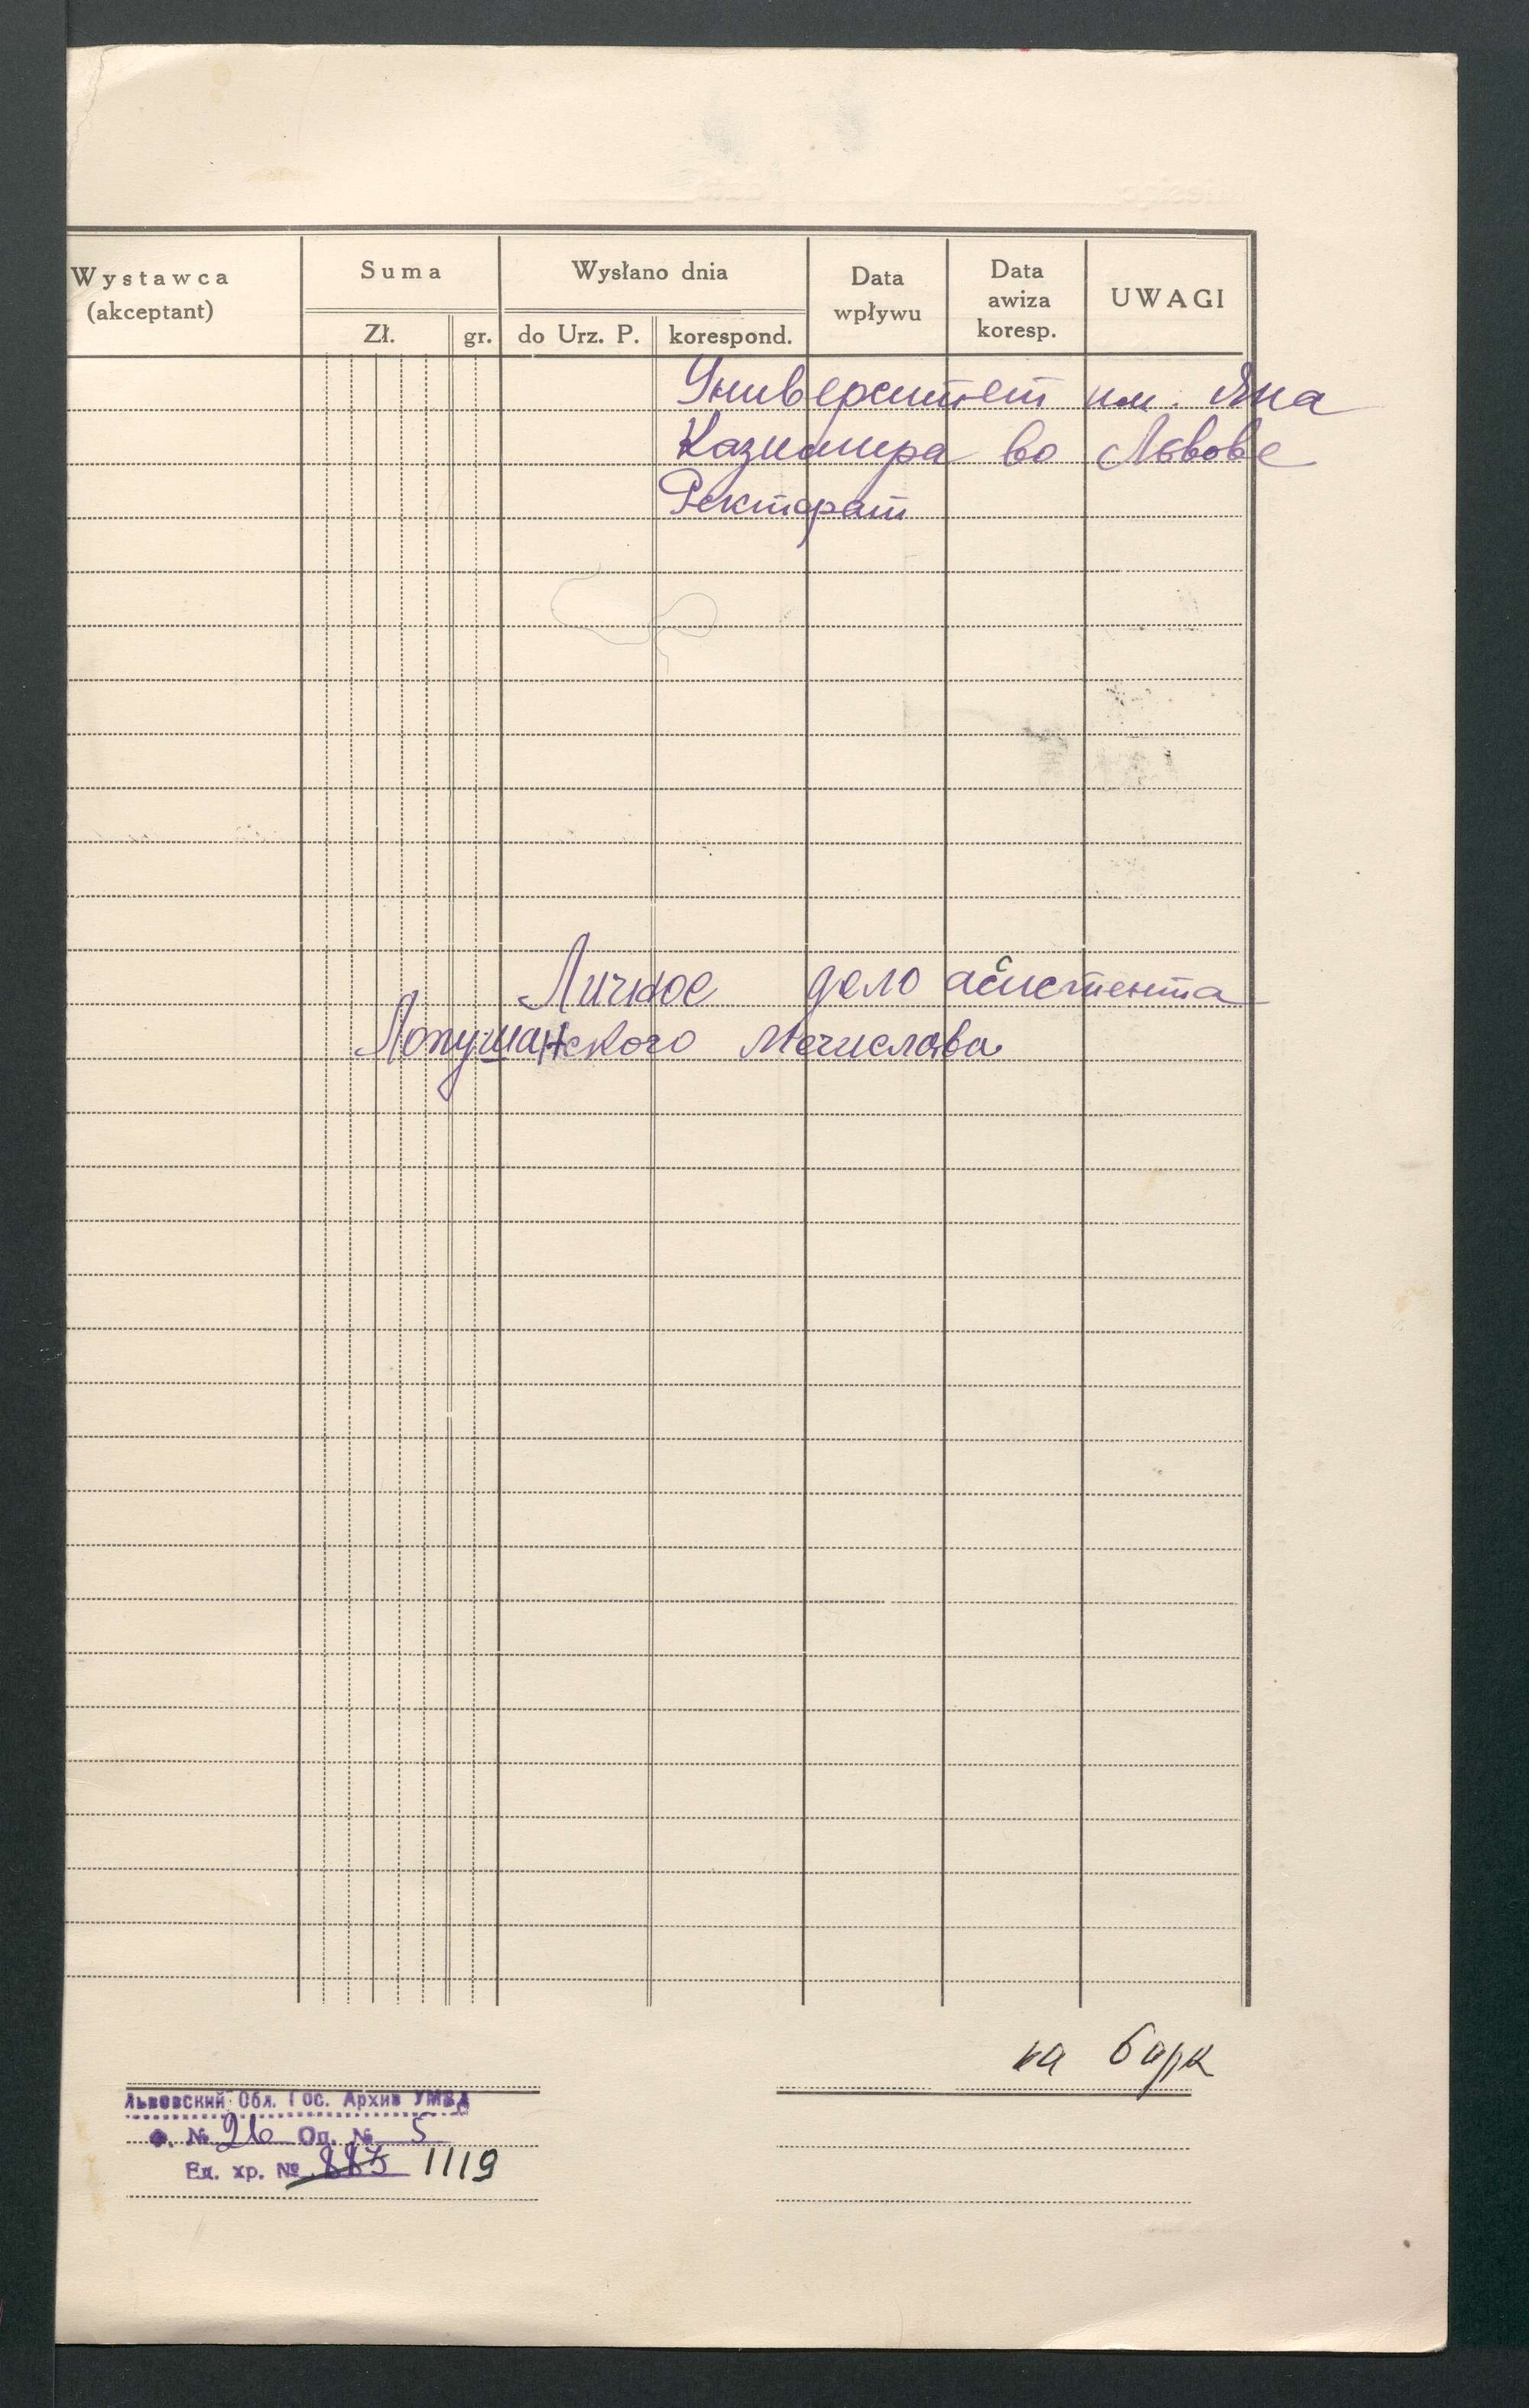 Wystawca (akceptant) Suma Wysłano dnia Data wpływu Data awiza koresp. UWAGI
Zł. gr. do Urz. P. korespond.
Университет им. Яна
Казимира во Львове
Ректорат
Личное дело асистента
Лопушанского Мечислава
на
Львовский Обл. Гос. Архив УМВД
Ф. № 26 Оп. № 5
Ед. хр. № 885 1119